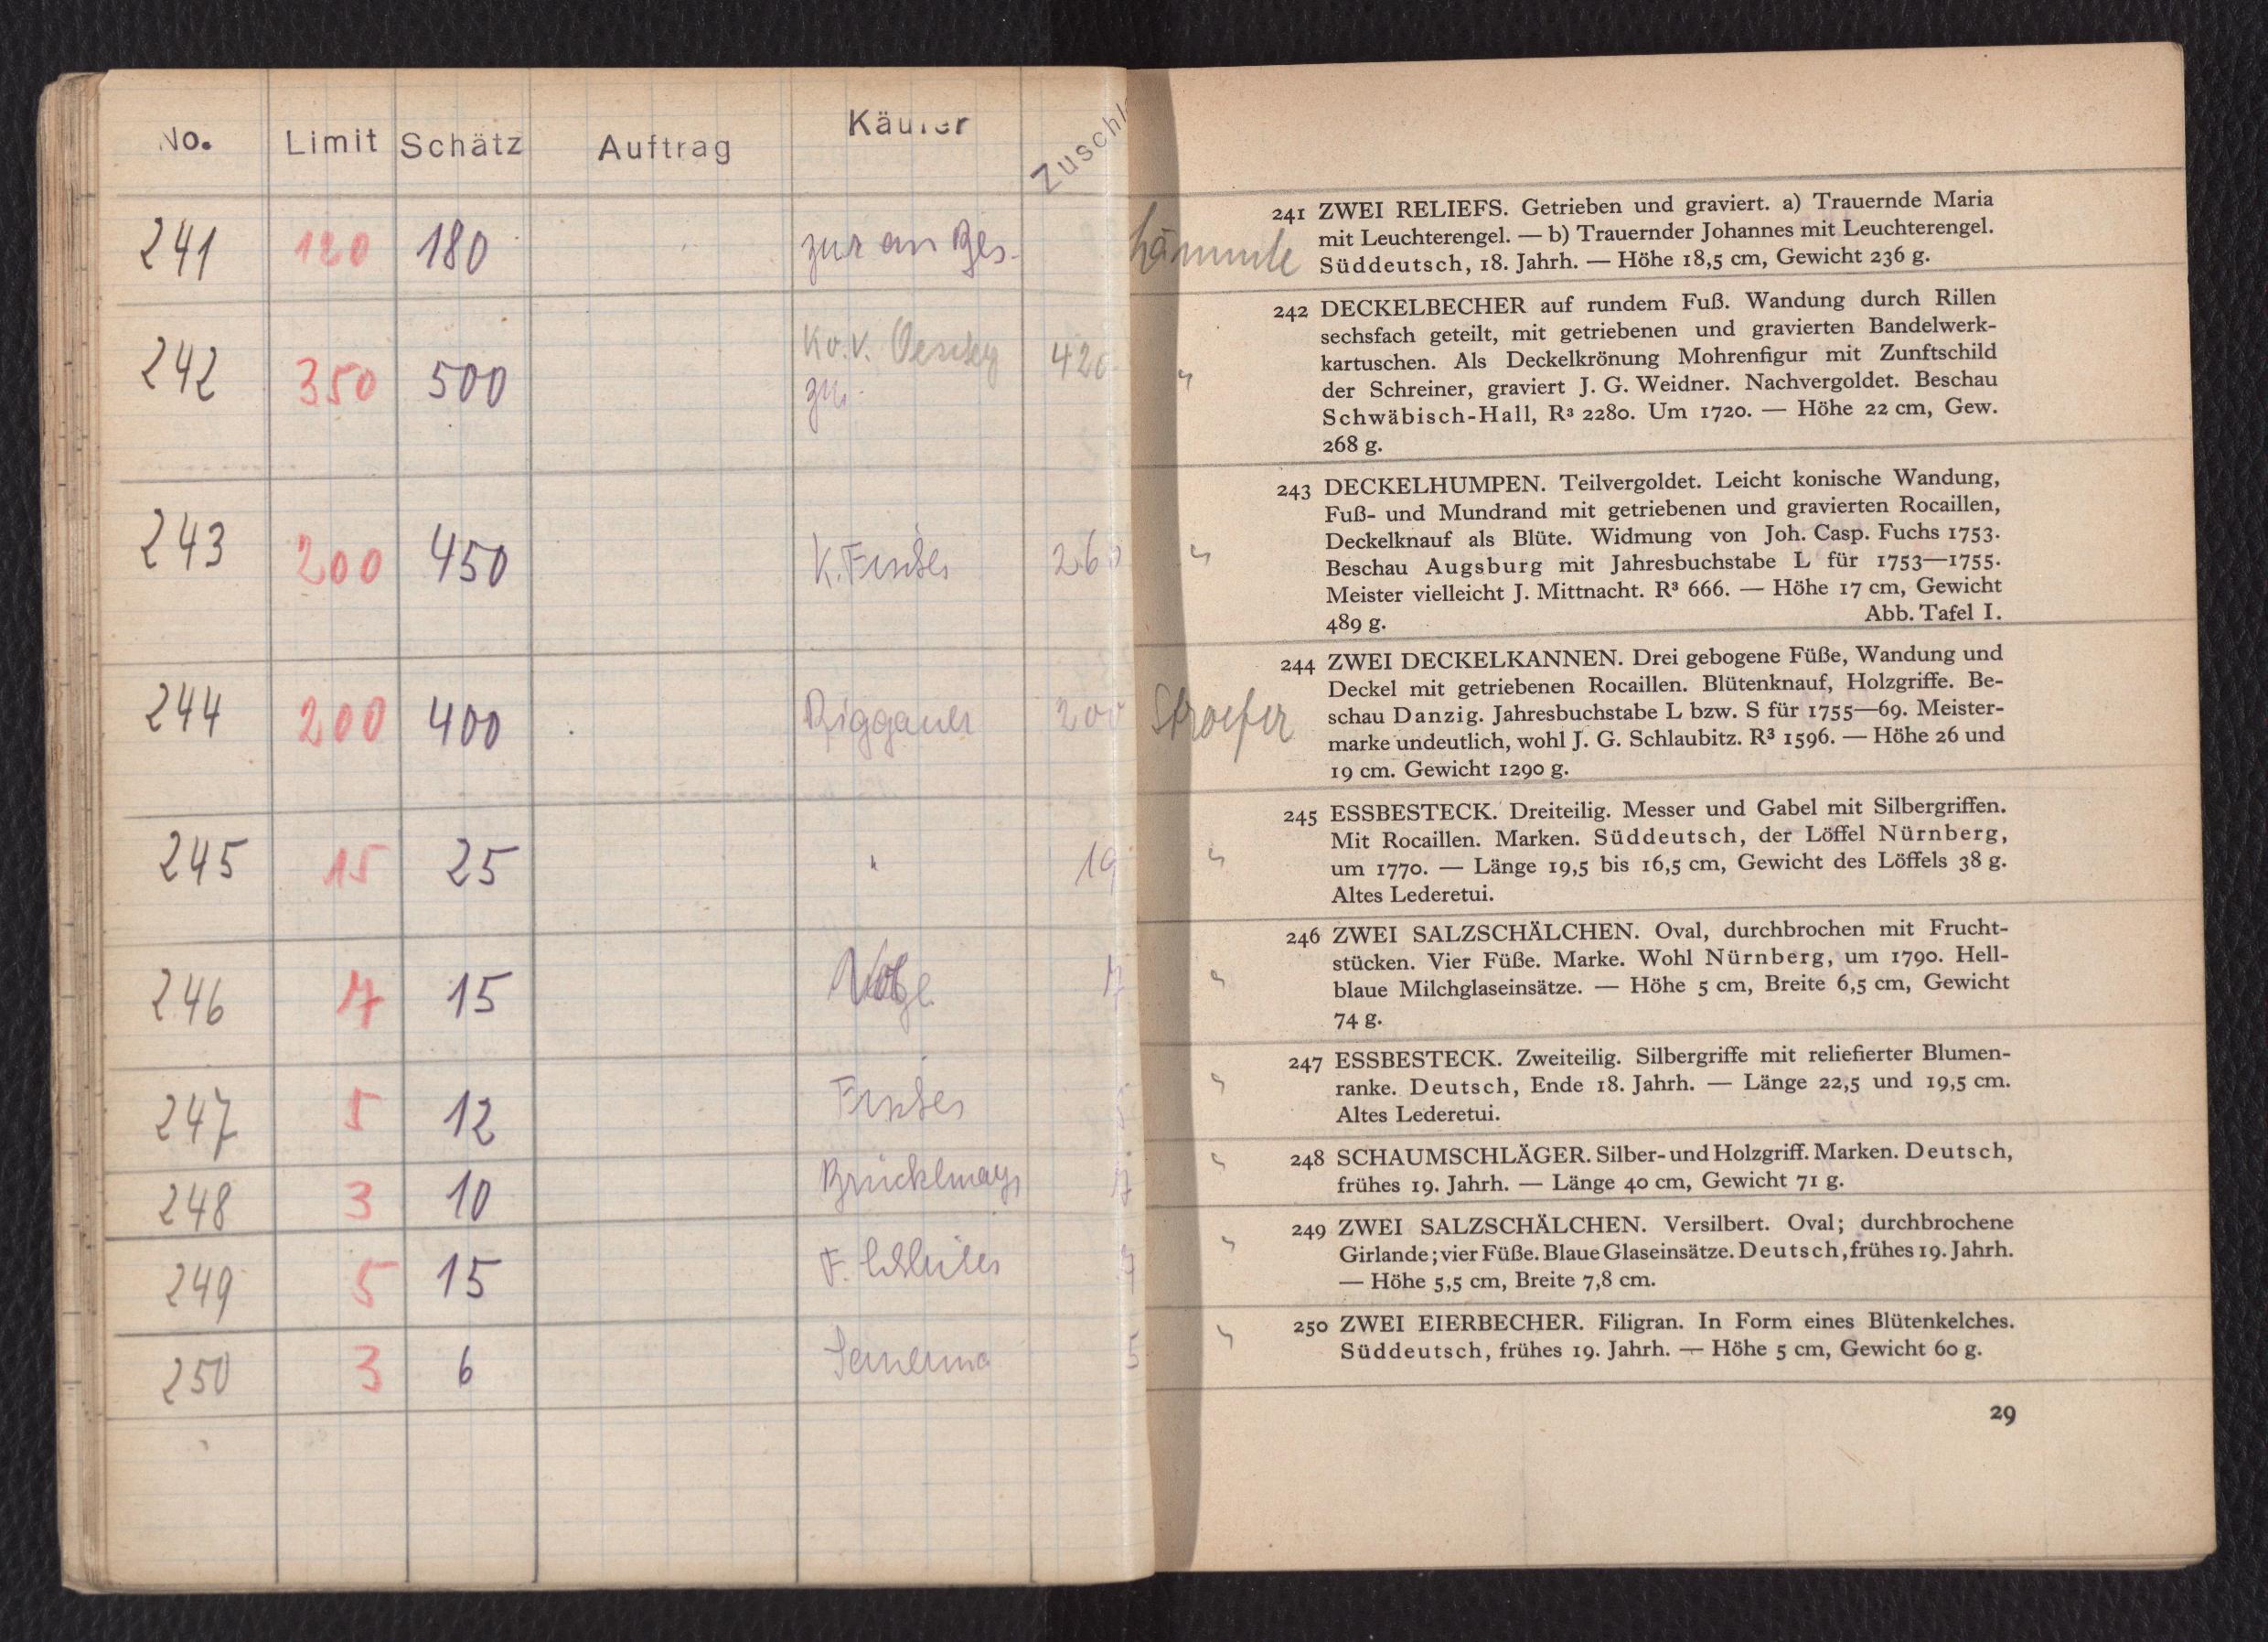 No. Limit Schätz Auftrag Käufer Zuschl
241 120 180 zur an Bes.
242 350 500 420
zur.
243 200 450 K. Fischer 260
244 200 400 Riggauer 200
245 15 25 " 19
246 7 15 7
247 5 12 Fischer 5
248 3 10 Brücklmayr 7
249 5 15 F. 7
250 3 6 5
241 ZWEI RELIEFS. Getrieben und graviert. a) Trauernde Maria
mit Leuchterengel. — b) Trauernder Johannes mit Leuchterengel.
Süddeutsch, 18. Jahrh. — Höhe 18,5 cm, Gewicht 236 g.
"
242 DECKELBECHER auf rundem Fuß. Wandung durch Rillen
sechsfach geteilt, mit getriebenen und gravierten Bandelwerk-
kartuschen. Als Deckelkrönung Mohrenfigur mit Zunftschild
der Schreiner, graviert J. G. Weidner. Nachvergoldet. Beschau
Schwäbisch-Hall, R³ 2280. Um 1720. — Höhe 22 cm, Gew.
268 g.
"
243 DECKELHUMPEN. Teilvergoldet. Leicht konische Wandung,
Fuß- und Mundrand mit getriebenen und gravierten Rocaillen,
Deckelknauf als Blüte. Widmung von Joh. Casp. Fuchs 1753.
Beschau Augsburg mit Jahresbuchstabe L für 1753—1755.
Meister vielleicht J. Mittnacht. R³ 666. — Höhe 17 cm, Gewicht
489 g. Abb. Tafel I.
Stroefer
244 ZWEI DECKELKANNEN. Drei gebogene Füße, Wandung und
Deckel mit getriebenen Rocaillen. Blütenknauf, Holzgriffe. Be-
schau Danzig. Jahresbuchstabe L bzw. S für 1755—69. Meister-
marke undeutlich, wohl J. G. Schlaubitz. R³ 1596. — Höhe 26 und
19 cm. Gewicht 1290 g.
"
245 ESSBESTECK. Dreiteilig. Messer und Gabel mit Silbergriffen.
Mit Rocaillen. Marken. Süddeutsch, der Löffel Nürnberg,
um 1770. — Länge 19,5 bis 16,5 cm, Gewicht des Löffels 38 g.
Altes Lederetui.
"
246 ZWEI SALZSCHÄLCHEN. Oval, durchbrochen mit Frucht-
stücken. Vier Füße. Marke. Wohl Nürnberg, um 1790. Hell-
blaue Milchglaseinsätze. — Höhe 5 cm, Breite 6,5 cm, Gewicht
74 g.
"
247 ESSBESTECK. Zweiteilig. Silbergriffe mit reliefierter Blumen-
ranke. Deutsch, Ende 18. Jahrh. — Länge 22,5 und 19,5 cm.
Altes Lederetui.
"
248 SCHAUMSCHLÄGER. Silber- und Holzgriff. Marken. Deutsch,
frühes 19. Jahrh. — Länge 40 cm, Gewicht 71 g.
"
249 ZWEI SALZSCHÄLCHEN. Versilbert. Oval; durchbrochene
Girlande; vier Füße. Blaue Glaseinsätze. Deutsch, frühes 19. Jahrh.
— Höhe 5,5 cm, Breite 7,8 cm.
"
250 ZWEI EIERBECHER. Filigran. In Form eines Blütenkelches.
Süddeutsch, frühes 19. Jahrh. — Höhe 5 cm, Gewicht 60 g.
29